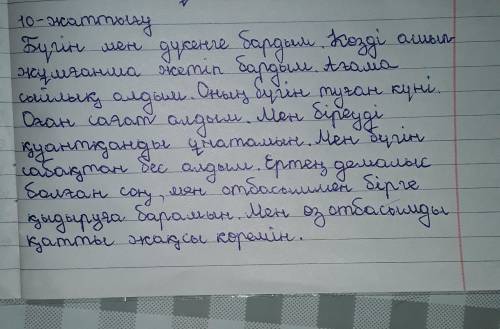 10-жаттығу
Бүгін мен дүкенге бардым. Көзді ашып
жұмғанша жетіп бардым. Ағама
сыйлық алдым. Оның бүгін туған күні.
Оған сағат алдым. Мен біреуді
қуантқанды ұнатамын. Мен бүгін
сабақтан бес алдым. Ертең демалыс
болған соң, мен отбасыммен бірге
қыдыруға барамын. Мен өз отбасымды
қатты жақсы көремін.